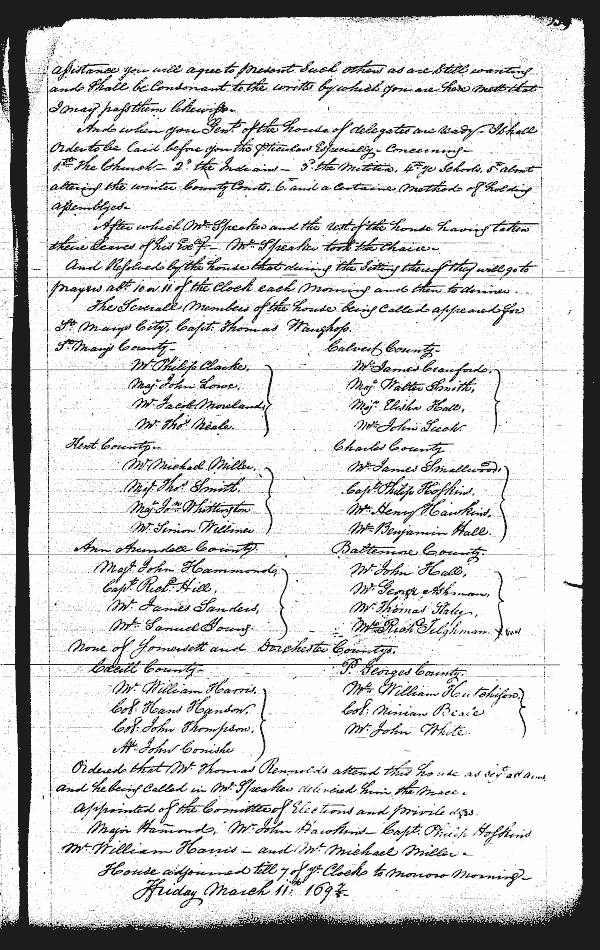 assistance you will agree to present Such others as are Still wanting
and Shall be Consonant to the writts by which you are here mett that
I may pass them likewise.
And when you Gent. of the house of delegates are ready I shall
Order to be laid before you the pticulars Especially Concerning
1st the Church - 2d the Indians - 3d the Militia, 4th ye Schools, 5th about
altering the winter County Courts, 6 and a Certaine method of holding
assemblyes
After which Mr Speaker and the rest of the house having taken
their Leaves of his Exy - Mr Speaker took the Chaire.
And Resolved by the house that during the Sitting thereof they will go to
prayers abt 10 or 11 of the Clock each Morning and then to dinner
The Severall Members of the house being Called appeared for
St Marys City, Capt. Thomas Waughop.
St Marys County Calvert County
Mr Philip Clarke, Mr James Cranford,
Maj John Lowe, Maj Walter Smith,
Mr Jacob Moreland, Maj Elisha Hall,
Mr Tho. Neale. Mr John
Kent County Charles County
Mr Michael Miller, Mr James Smallwood,
Maj Tho. Smith, Capt Philip Hoskins,
Maj Jno Whittington Mr Henry Hawkins,
Mr Simon Willmer Mr Benjamin Hall
Ann Arundell County Baltemore County
Majr John Hammond, Mr John Hall,
Capt Richd Hill, Mr George Ashman,
Mr James Sanders, Mr Thomas
Mr Samuel Young Mr Richd Tilghman
None of Somersett and Dorchester Countys.
Cecill County Pr Georges County
Mr William Harris, Mr William Hutchison,
Col. Hans Hanson, Col. Ninian Beale
Col. John Thompson, Mr John White
Mr John
Ordered that Mr Thomas Rennolds attend this house as at arms
and he being Called in Mr Speaker delivered him the Mace.
Appointed of the Comittee of Elections and priviledges
Major Hamond, Mr John Hawkins - Capt. Philip Hoskins
Mr William Harris - and Mr Michael Miller -
House adjourned till 7 of ye Clock to morrow Morning
Friday March 11th 169